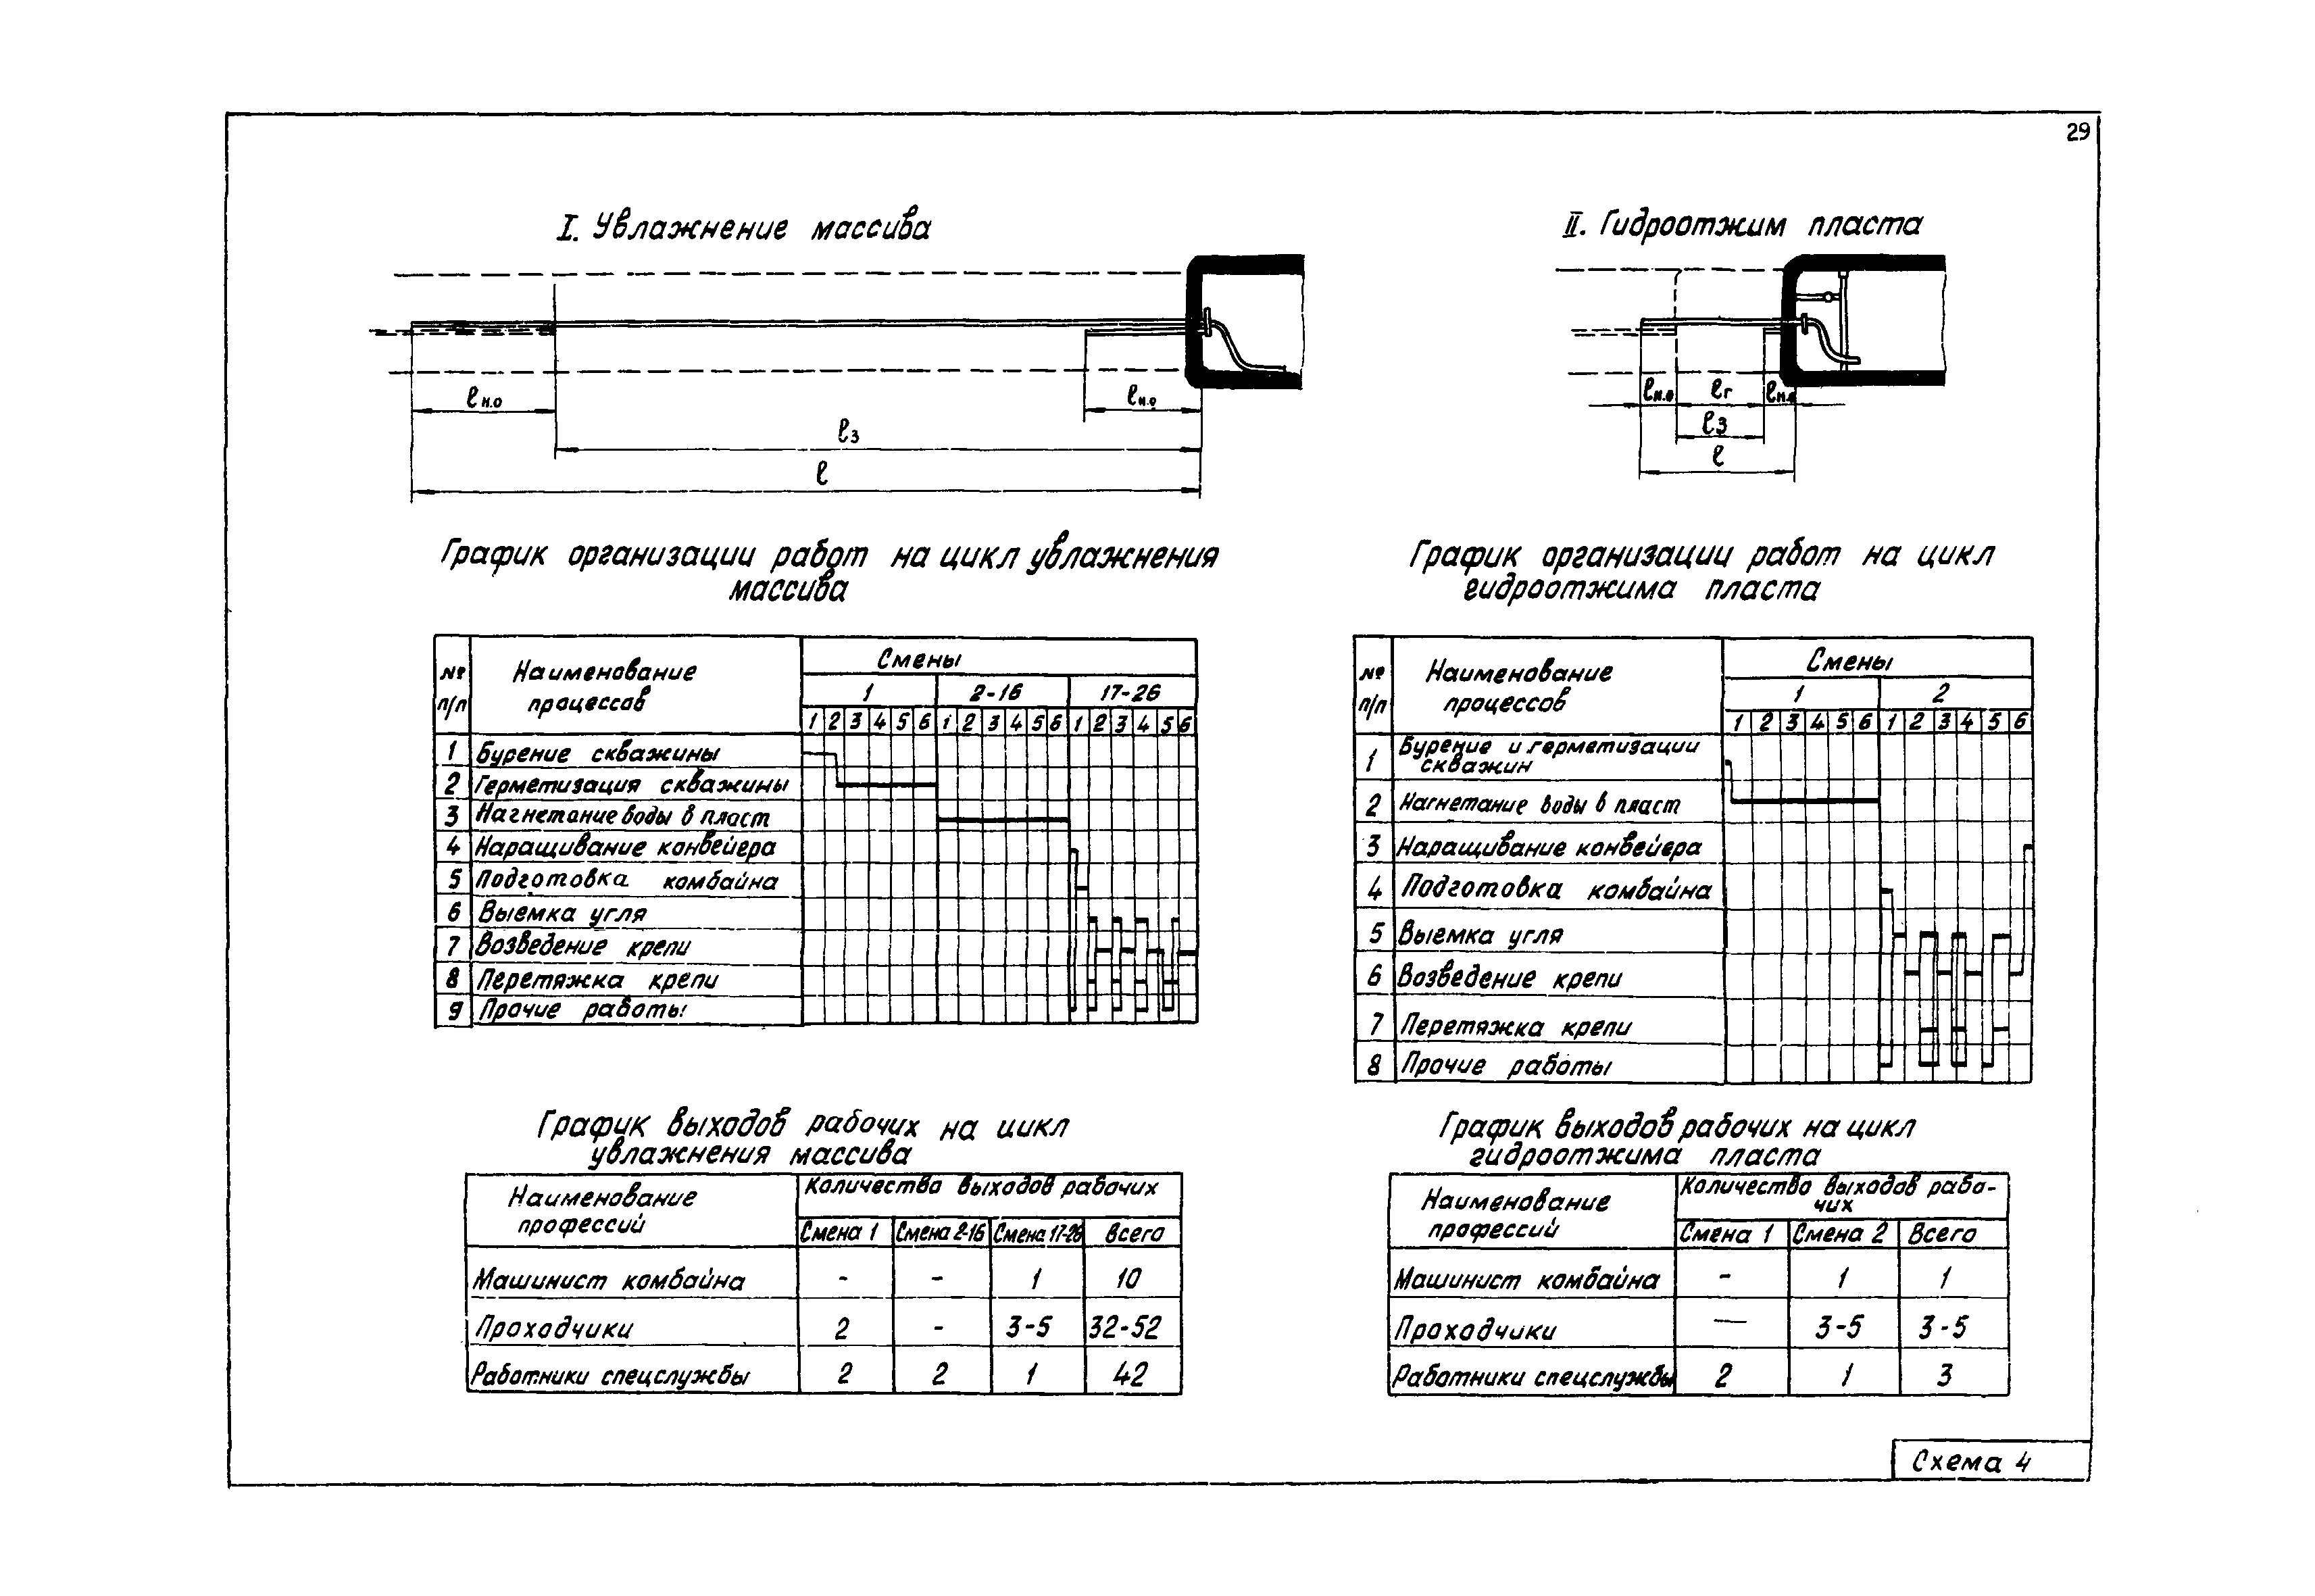 29
I. Увлажнение массива
ℓн.о
ℓн.о
ℓз
ℓ
График организации работ на цикл увлажнения
массива
№ п/п
Наименование
процессов
Смены
1 2-16 17-26
1 2 3 4 5 6 1 2 3 4 5 6 1 2 3 4 5 6
1 Бурение скважины
2 Герметизация скважины
3 Нагнетание воды в пласт
4 Наращивание конвейера
5 Подготовка комбайна
6 Выемка угля
7 Возведение крепи
8 Перетяжка крепи
9 Прочие работы
График выходов рабочих на цикл
увлажнения массива
Наименование
профессий
Количество выходов рабочих
Смена 1 Смена 2-16 Смена 17-26 Всего
Машинист комбайна - - 1 10
Проходчики 2 - 3-5 32-52
Работники спецслужбы 2 2 1 42
II. Гидроотжим пласта
ℓн.о ℓг ℓн.о
ℓз
ℓ
График организации работ на цикл
гидроотжима пласта
№ п/п
Наименование
процессов
Смены
1 2
1 2 3 4 5 6 1 2 3 4 5 6
1 Бурение и герметизации
скважин
2 Нагнетание воды в пласт
3 Наращивание конвейера
4 Подготовка комбайна
5 Выемка угля
6 Возведение крепи
7 Перетяжка крепи
8 Прочие работы
График выходов рабочих на цикл
гидроотжима пласта
Наименование
профессий
Количество выходов рабо-
чих
Смена 1 Смена 2 Всего
Машинист комбайна - 1 1
Проходчики — 3-5 3-5
Работники спецслужбы 2 1 3
Схема 4